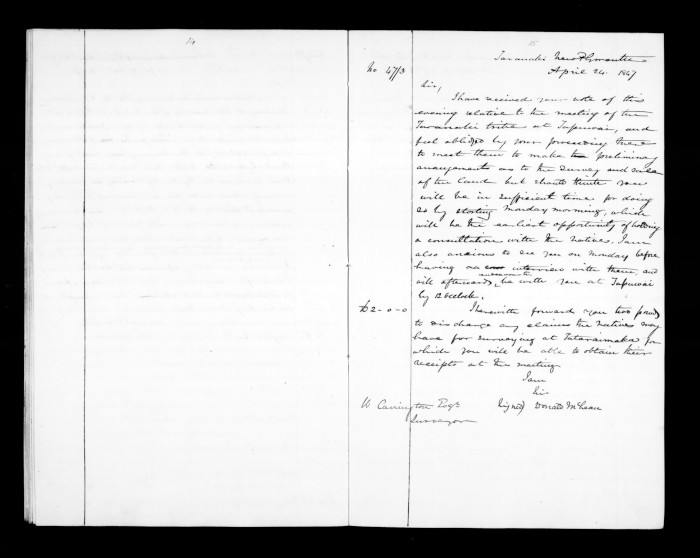 14
15
Taranaki New Plymouth
No 47/3
April 24. 1847
Sir,
I have received your note of this
evening relative to the meeting of the
Taranaki tribe at Tapuwai, and
feel obliged by your proceeding there
to meet them to make the preliminary
arrangements as to the survey and sale
of the Land but should think you
will be in sufficient time for doing
so by starting Monday morning, which
will be the earliest opportunity of holding
a consultation with the Natives. I am
also anxious to see you on Monday before
having an interview with them, and
will afterwards be with you at Tapuwai
by 12 Oclock.
£2-0-0
I herewith forward you two pounds
to discharge any claims the Natives may
have for surveying at Tataraimaka for
which you will be able to obtain their
receipts at the meeting
I am
Sir
Signed) Donald McLean
W Carrington Esqre
Surveyor